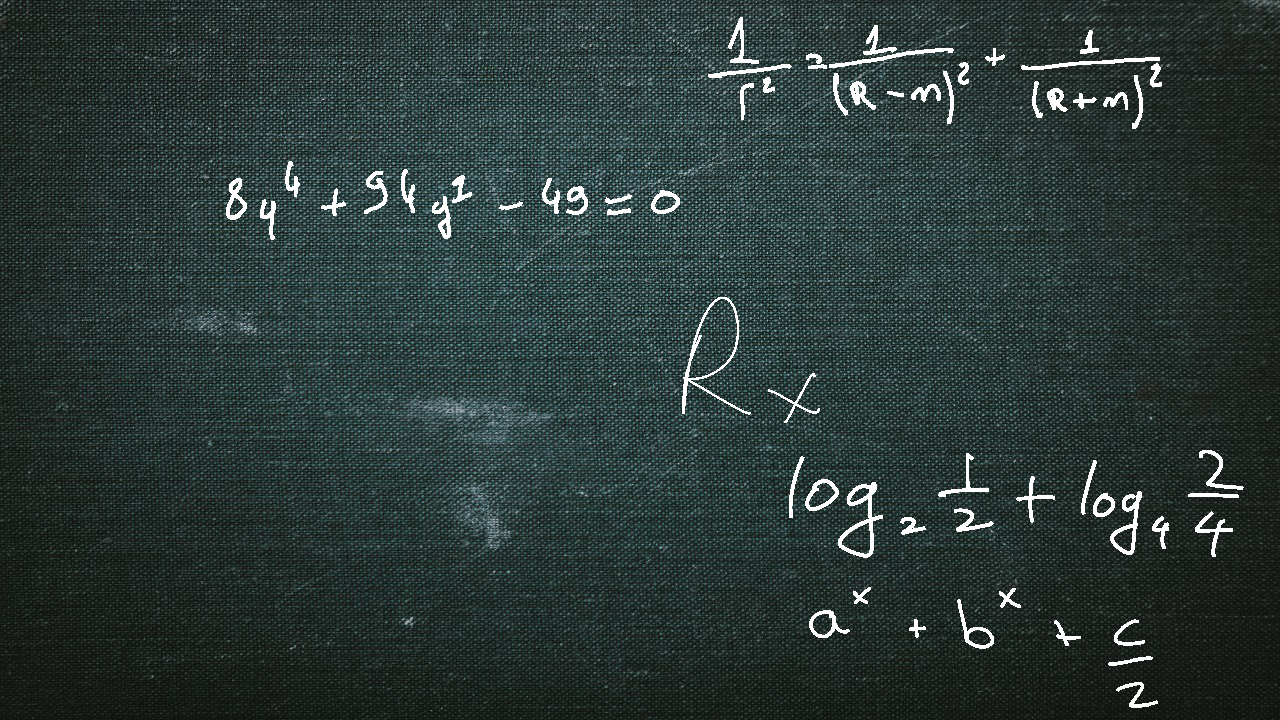 1/r² = 1/(R-n)² + 1/(R+n)²
8y⁴ + 94y² - 49 = 0
Rx
log₂ 1/2 + log₄ 2/4
aˣ + bˣ + c/2